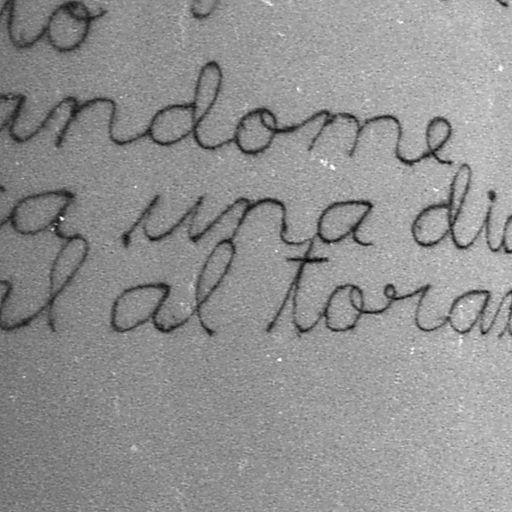 to
andome
a una dia
al al torax